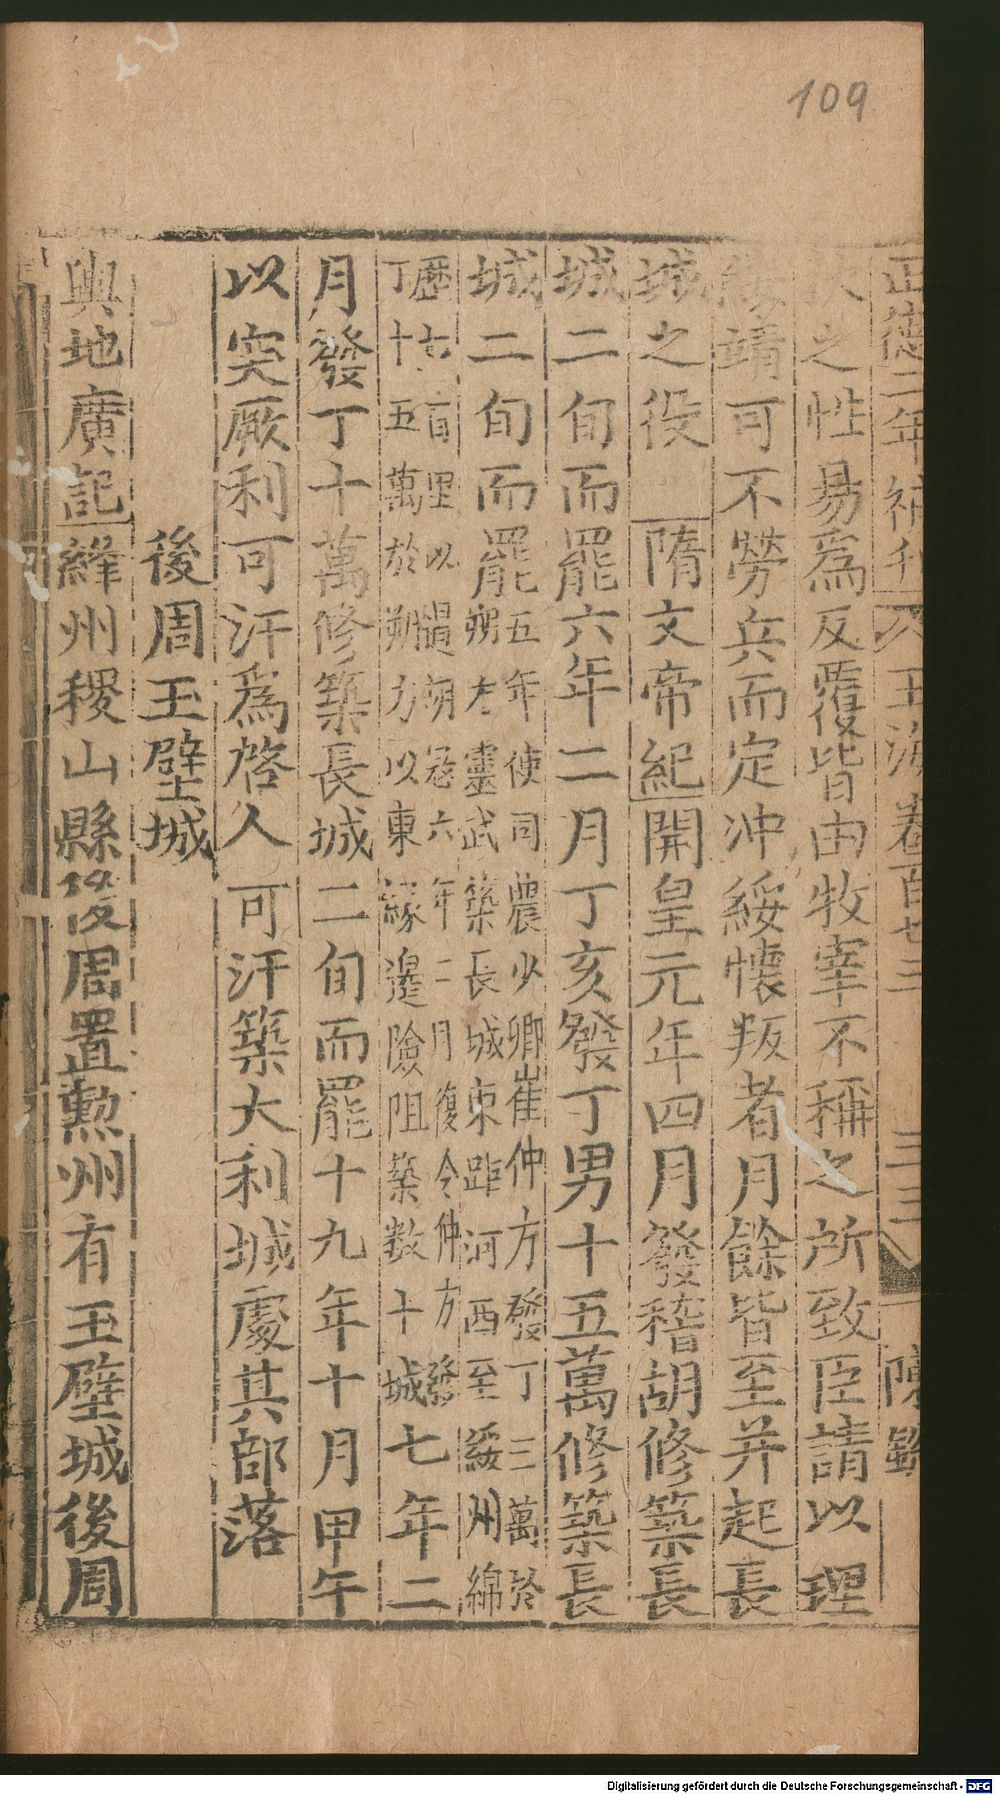 109
正德二年補刊 玉海卷百七十三 三三 陳欽
之性易爲反覆皆由牧宰不稱之所致臣請以理
綏靖可不勞兵而定沖綏懷叛者月餘皆至并起長
城之役 隋文帝紀開皇元年四月發稽胡修築長
城二旬而罷六年二月丁亥發丁男十五萬修築長
城二旬而罷
五年使司農少卿崔仲方發丁三萬於
朔方靈武築長城東距河西至綏州綿
歷七百里以遏胡寇六年二月復令仲方發
丁十五萬於朔方以東緣邊險阻築數十城
七年二
月發丁十萬修築長城二旬而罷十九年十月甲午
以突厥利可汗爲啓人可汗築大利城處其部落
後周玉壁城
輿地廣記絳州稷山縣後周置勲州有玉壁城後周
Digitalisierung gefördert durch die Deutsche Forschungsgemeinschaft - DFG